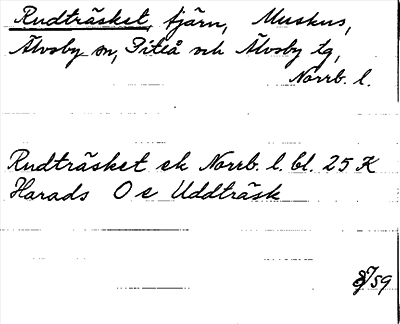 Rudträsket, tjärn, Muskus,
Älvsby sn, Piteå och Älvsby tg,
Norrb. l.
Rudträsket ek Norrb. l. bl. 25 K
Harads O e Uddträsk
/59